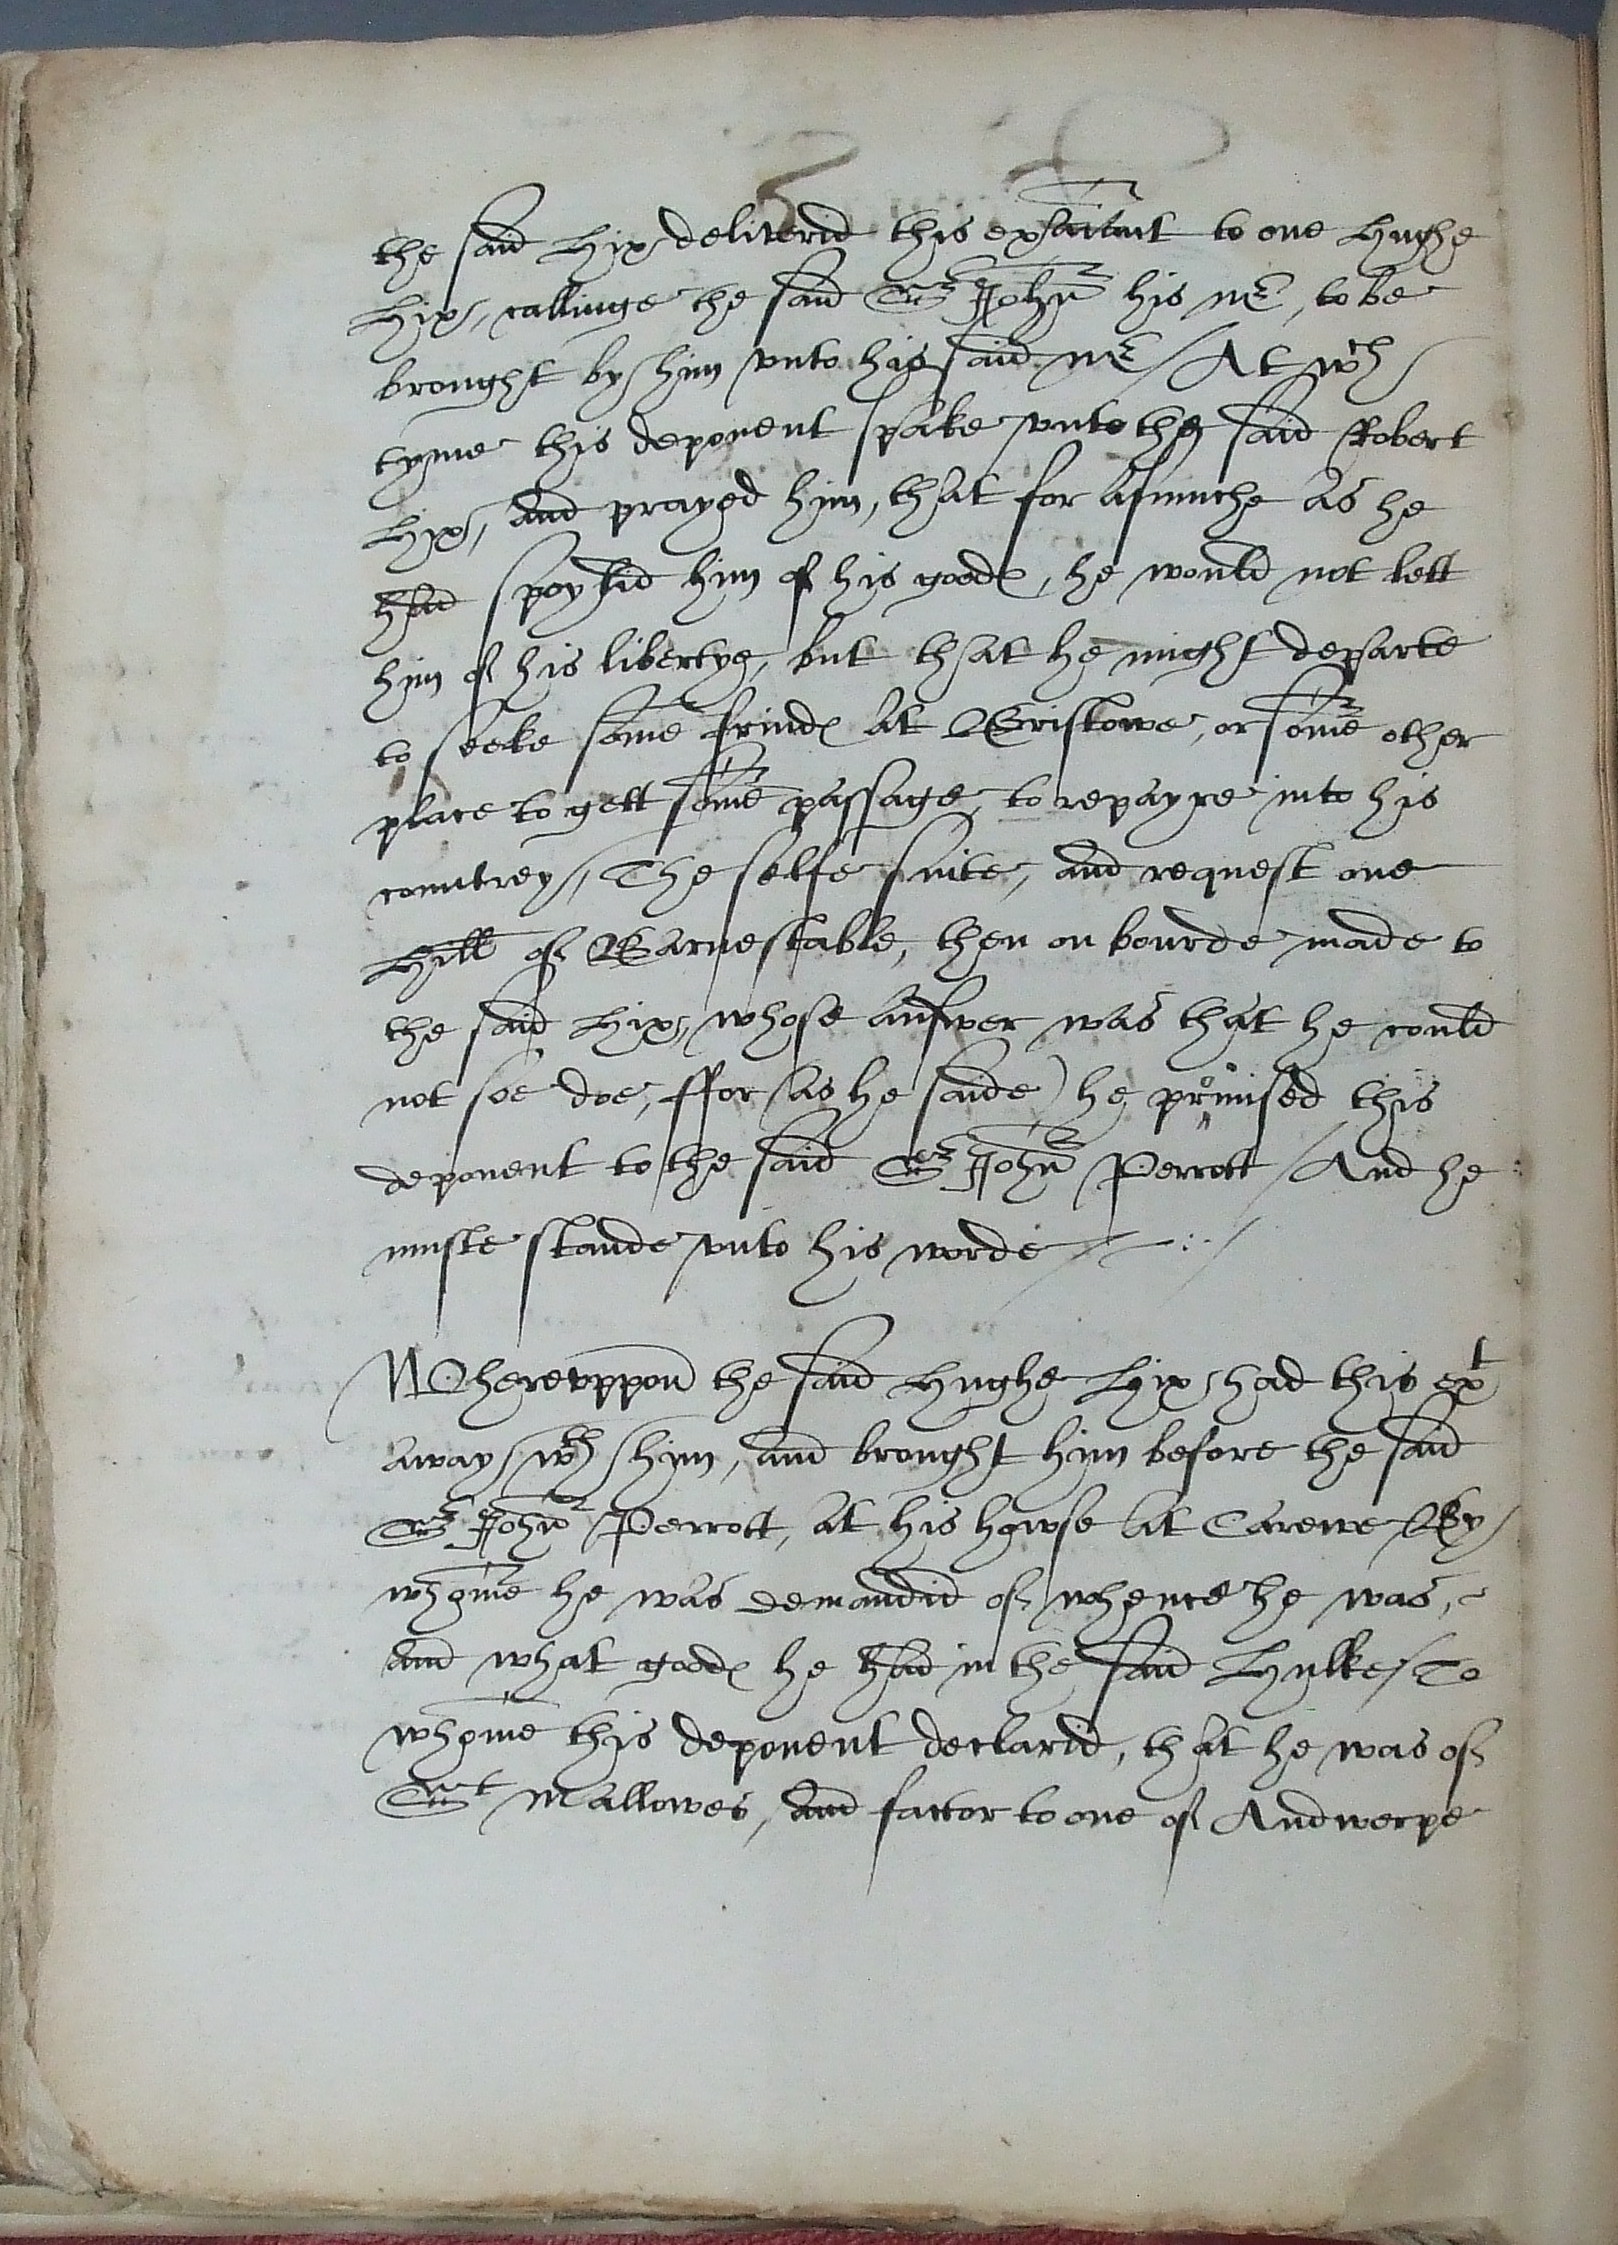 the said Hix deliverid this exaiant to one Hughe
Hix, callinge the said Sr John his mr, to be
brought by hym vnto his said mr / At wch
tyme this deponent spake vnto the said Robert
Hix, and prayed hym, that for asmuche as he
had spoylid hym of his goodes, he would not lett
hym of his libertye, but that he might departe
to seeke some frindes at Bristowe, or some other
place to gett some passage, to repayre into his
countrey, The selfe suite, and request one
Hill of Barnestable, then on bourde made to
the said Hix, whose answer was that he could
not soe doe, ffor (as he saide) he promised this
deponent to the said Sr John Perrott / And he
muste stande vnto his worde
Wherevppon the said Hughe Hix had this ext
away wth hym, and brought hym before the said
Sr John Perrott, at his howse at Carewe By
whome he was demandid of whence he was,
and what goodes he had in the said Hulke / To
whome this deponent declarid, that he was of
St Mallowes, and factor to one of Andwerpe